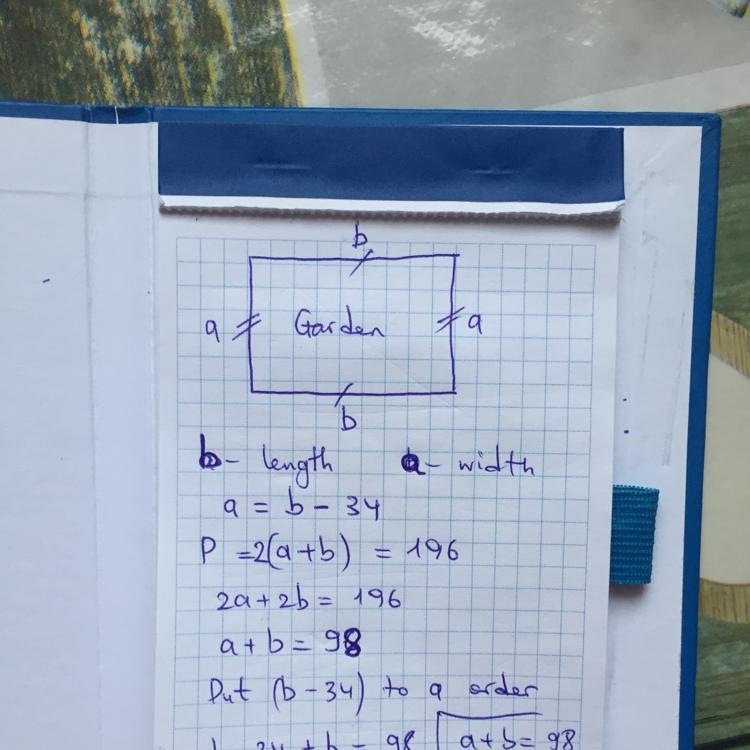 b
a Garden a
b
b - length a - width
a = b - 34
P = 2(a+b) = 196
2a + 2b = 196
a + b = 98
Put (b - 34) to a order
b - 34 + b = 98 a + b = 98